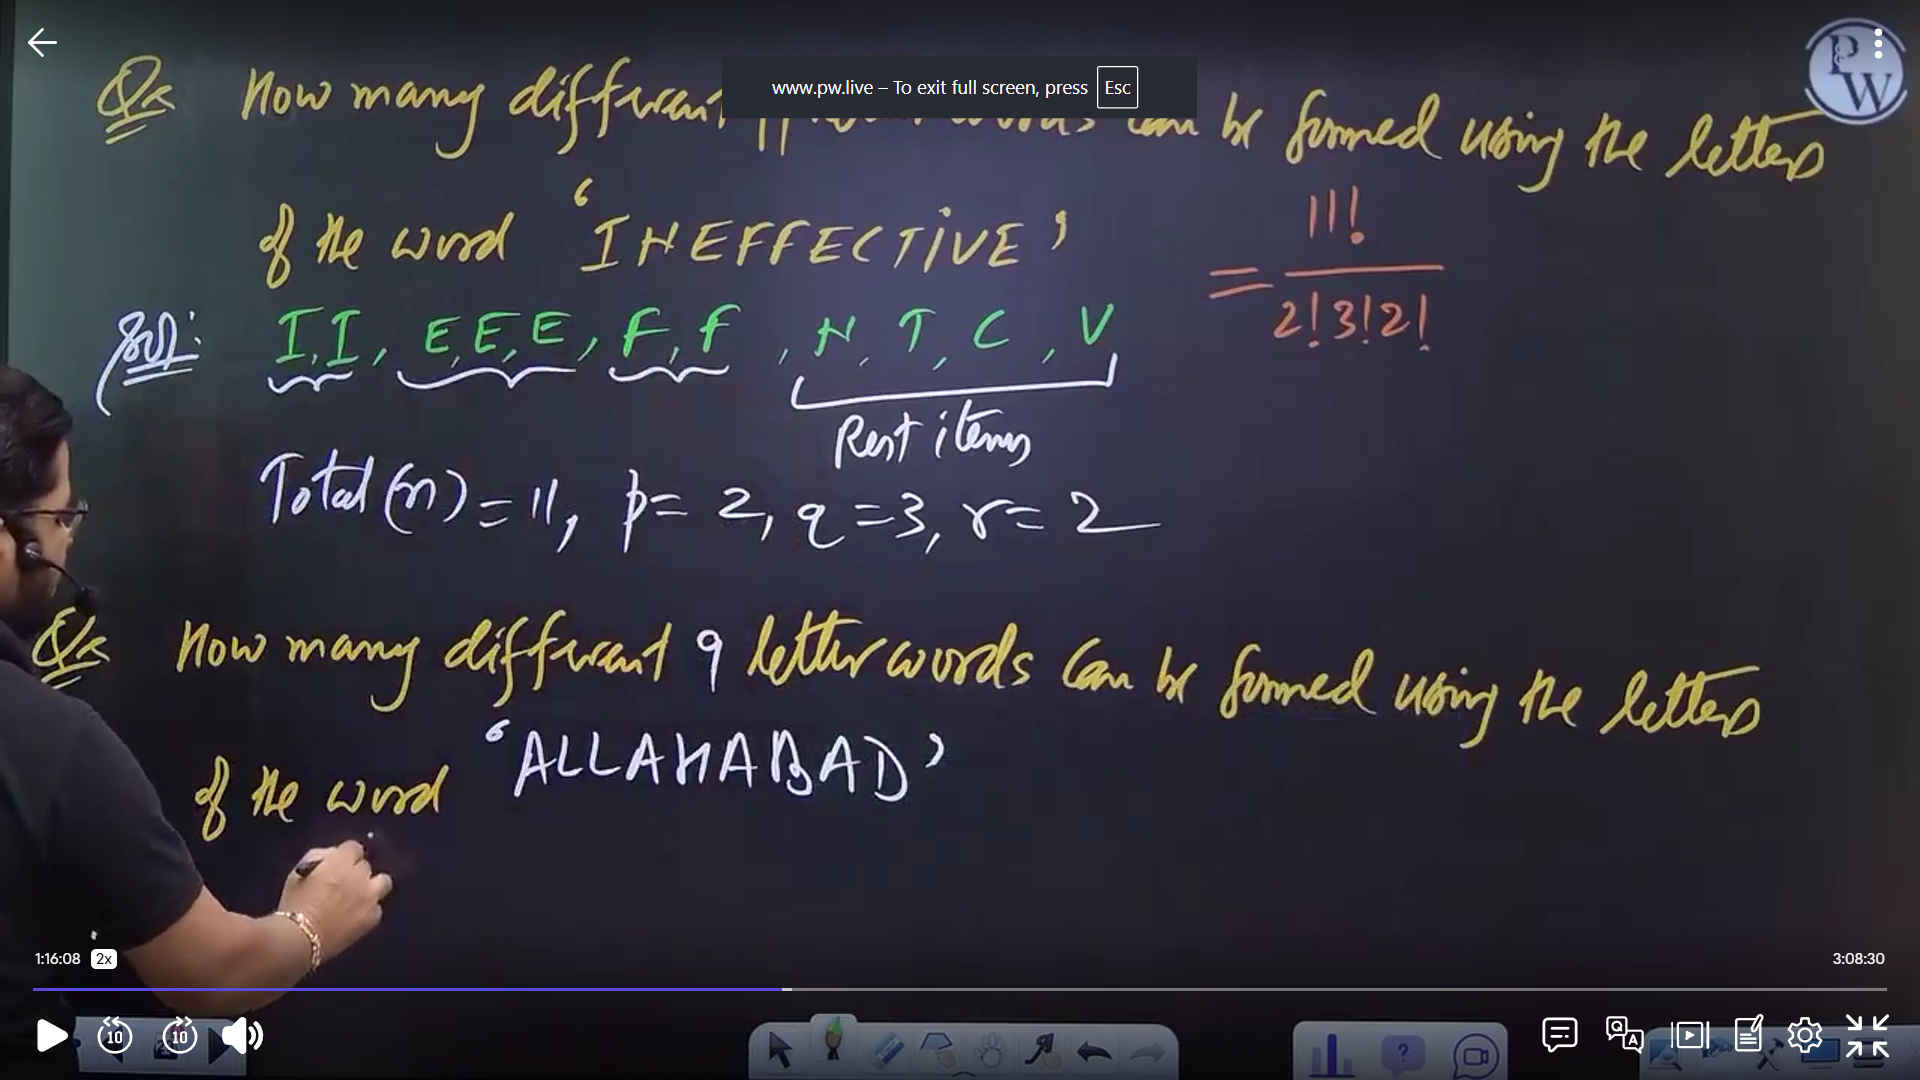 www.pw.live – To exit full screen, press Esc
PW
Q. How many different 11 words can be formed using the letters
of the word 'INEFFECTIVE'
= 11! / 2!3!2!
Sol: I, I, E, E, E, F, F, N, T, C, V
Rest items
Total (n) = 11, p = 2, q = 3, r = 2
Q. How many different 9 letter words can be formed using the letters
of the word 'ALLAHABAD'
1:16:08 2x 3:08:30
10 10